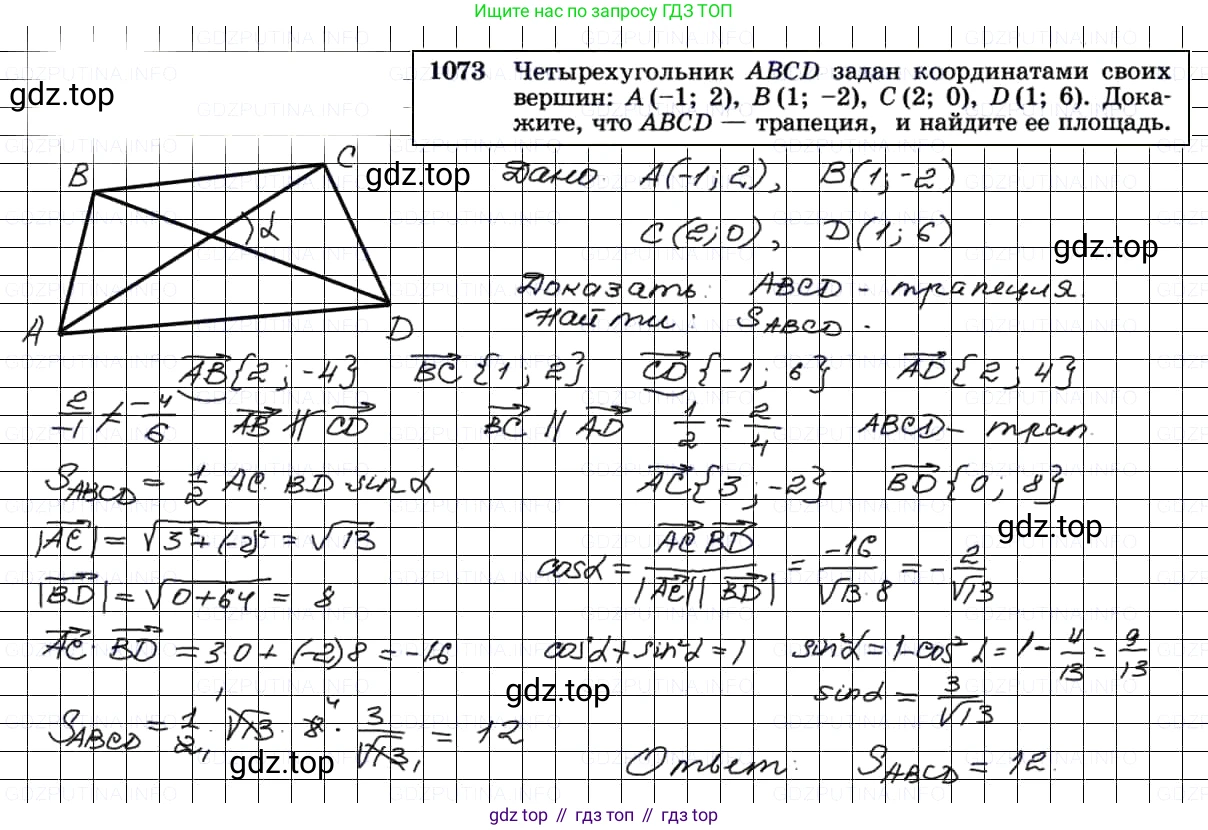 Ищите нас по запросу ГДЗ ТОП
gdz.top
1073 Четырехугольник ABCD задан координатами своих
вершин: A (−1; 2), B (1; −2), C (2; 0), D (1; 6). Дока-
жите, что ABCD — трапеция, и найдите ее площадь.
B C gdz.top
α
A D
Дано: A(-1; 2), B(1; -2)
C(2; 0), D(1; 6)
gdz.top
Доказать: ABCD - трапеция.
Найти: S_ABCD -
AB{2; -4} BC{1; 2} CD{-1; 6} AD{2; 4}
2/-1 ≠ -4/6 AB ∦ CD BC || AD 1/2 = 2/4 ABCD - трап.
S_ABCD = 1/2 AC · BD · sin α AC{3; -2} BD{0; 8}
gdz.top
|AC| = √3²+(-2)² = √13
cos α = AC BD / |AC| |BD| = -16/√13·8 = -2/√13
|BD| = √0+64 = 8
AC · BD = 3·0 + (-2)8 = -16 cos²α + sin²α = 1 sin²α = 1-cos²α = 1 - 4/13 = 9/13
gdz.top
sin α = 3/√13
S_ABCD = 1/2 · √13 · 8 · 3/√13 = 12
gdz.top
Ответ: S_ABCD = 12.
gdz top // гдз топ // gdz top